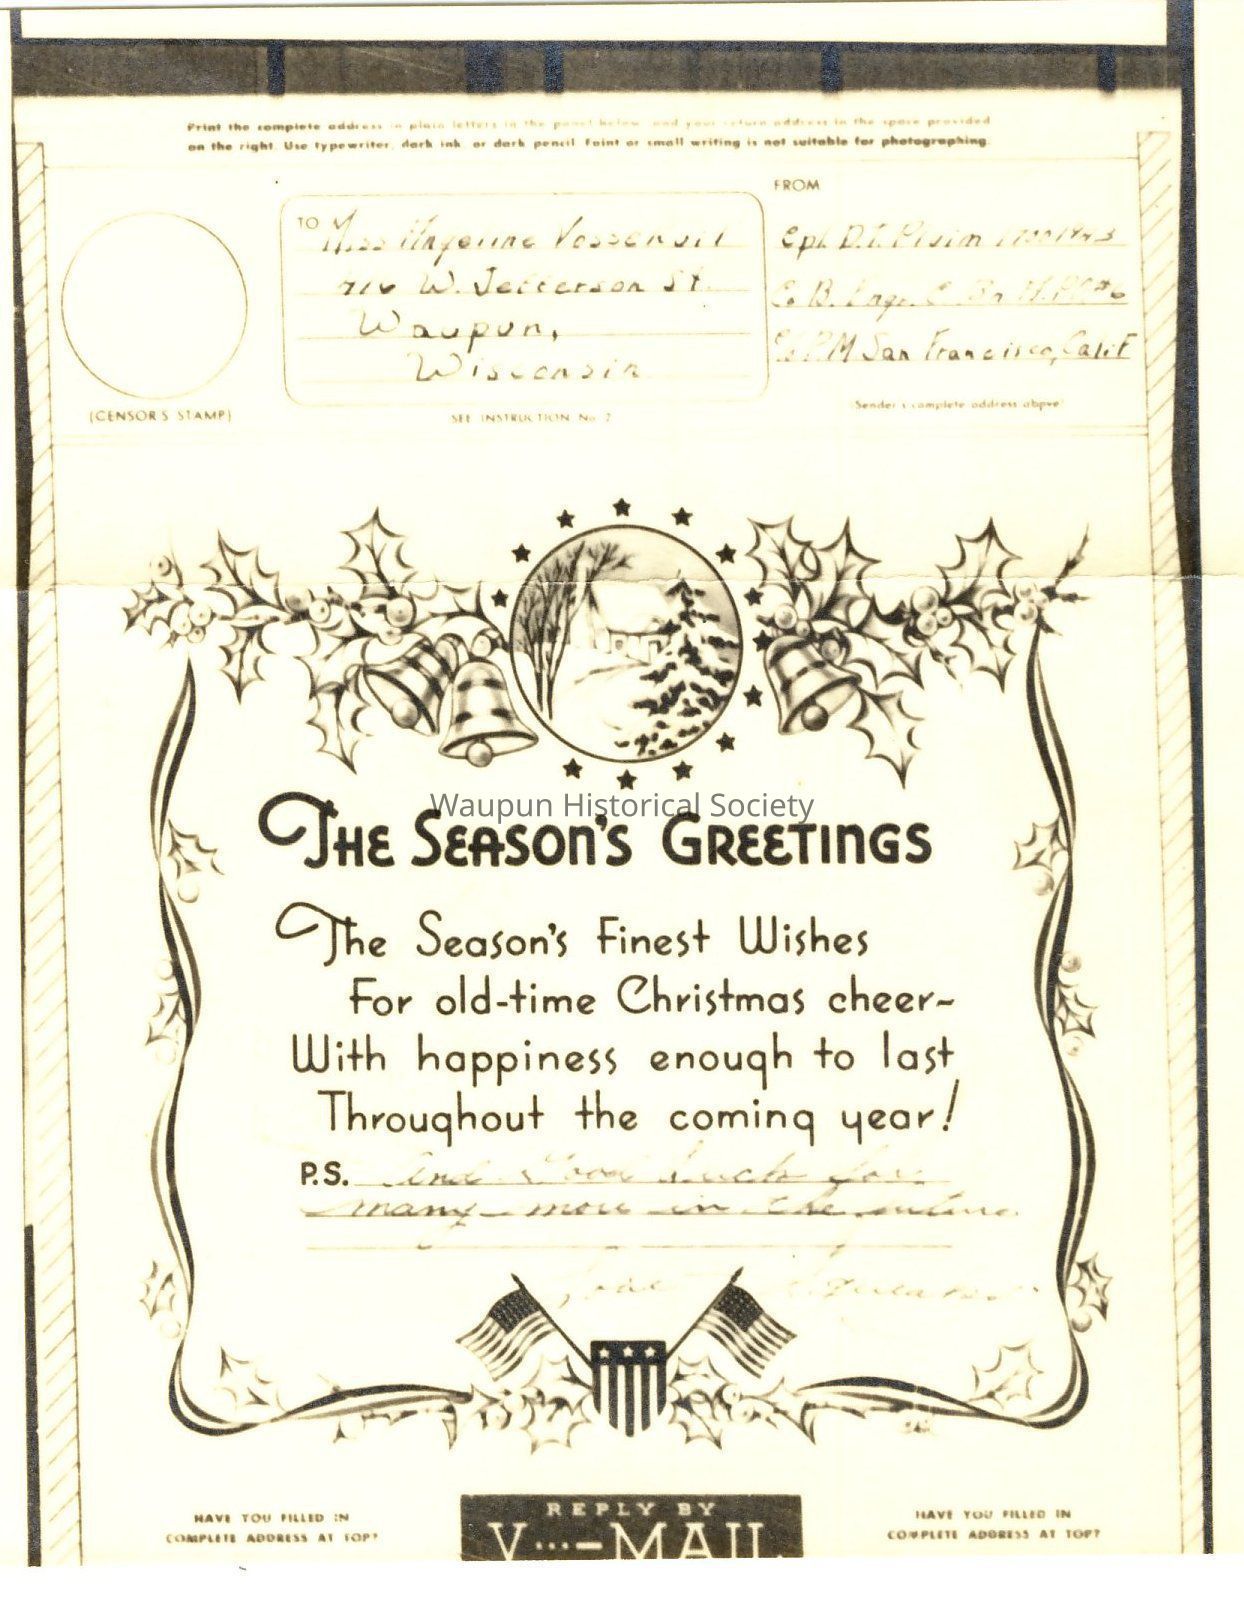 Print the complete address in plain letters in the panel below, and your return address in the space provided
on the right. Use typewriter, dark ink, or dark pencil. Faint or small writing is not suitable for photographing.
FROM
TO Miss
W. Jefferson St.
Waupun,
Wisconsin
Cpl. D.T.
Co B. Engr.
San Francisco, Calif
(CENSOR'S STAMP)
SEE INSTRUCTION No. 2
(Sender's complete address above)
Waupun Historical Society
THE SEASON'S GREETINGS
The Season's Finest Wishes
For old-time Christmas cheer~
With happiness enough to last
Throughout the coming year!
P.S. And Good Luck for
many more in the future.
HAVE YOU FILLED IN
COMPLETE ADDRESS AT TOP?
REPLY BY
V···—MAIL
HAVE YOU FILLED IN
COMPLETE ADDRESS AT TOP?